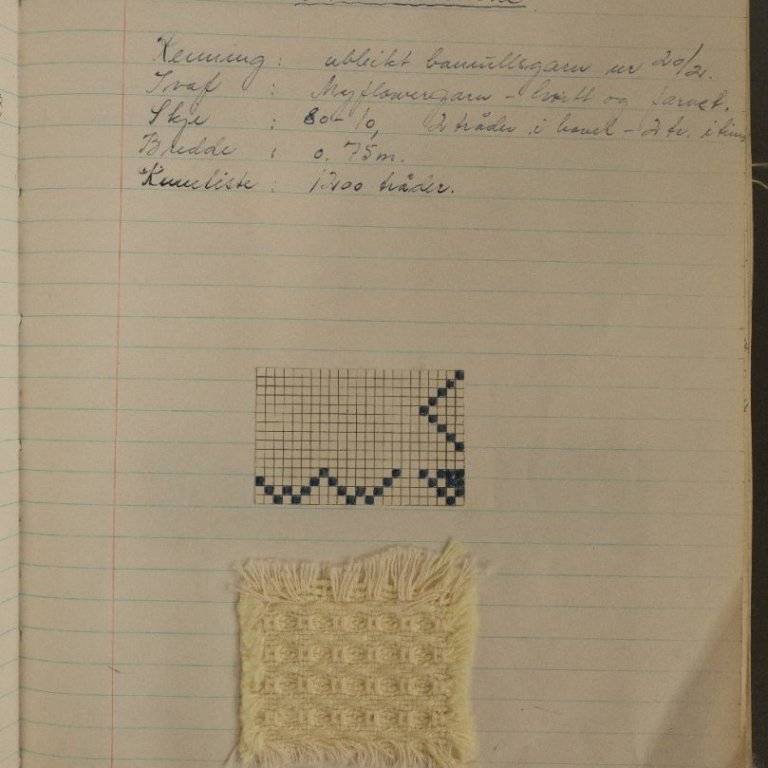 Renning : ubleikt bomullsgarn nr 20/2.
Isvef : Mayflowergarn - hvitt og farvet.
Skje : 80-10, 2 tråder i hovel - 2 tr. i tind
Bredde : 0.75m.
Rennetiste : 1200 tråder.